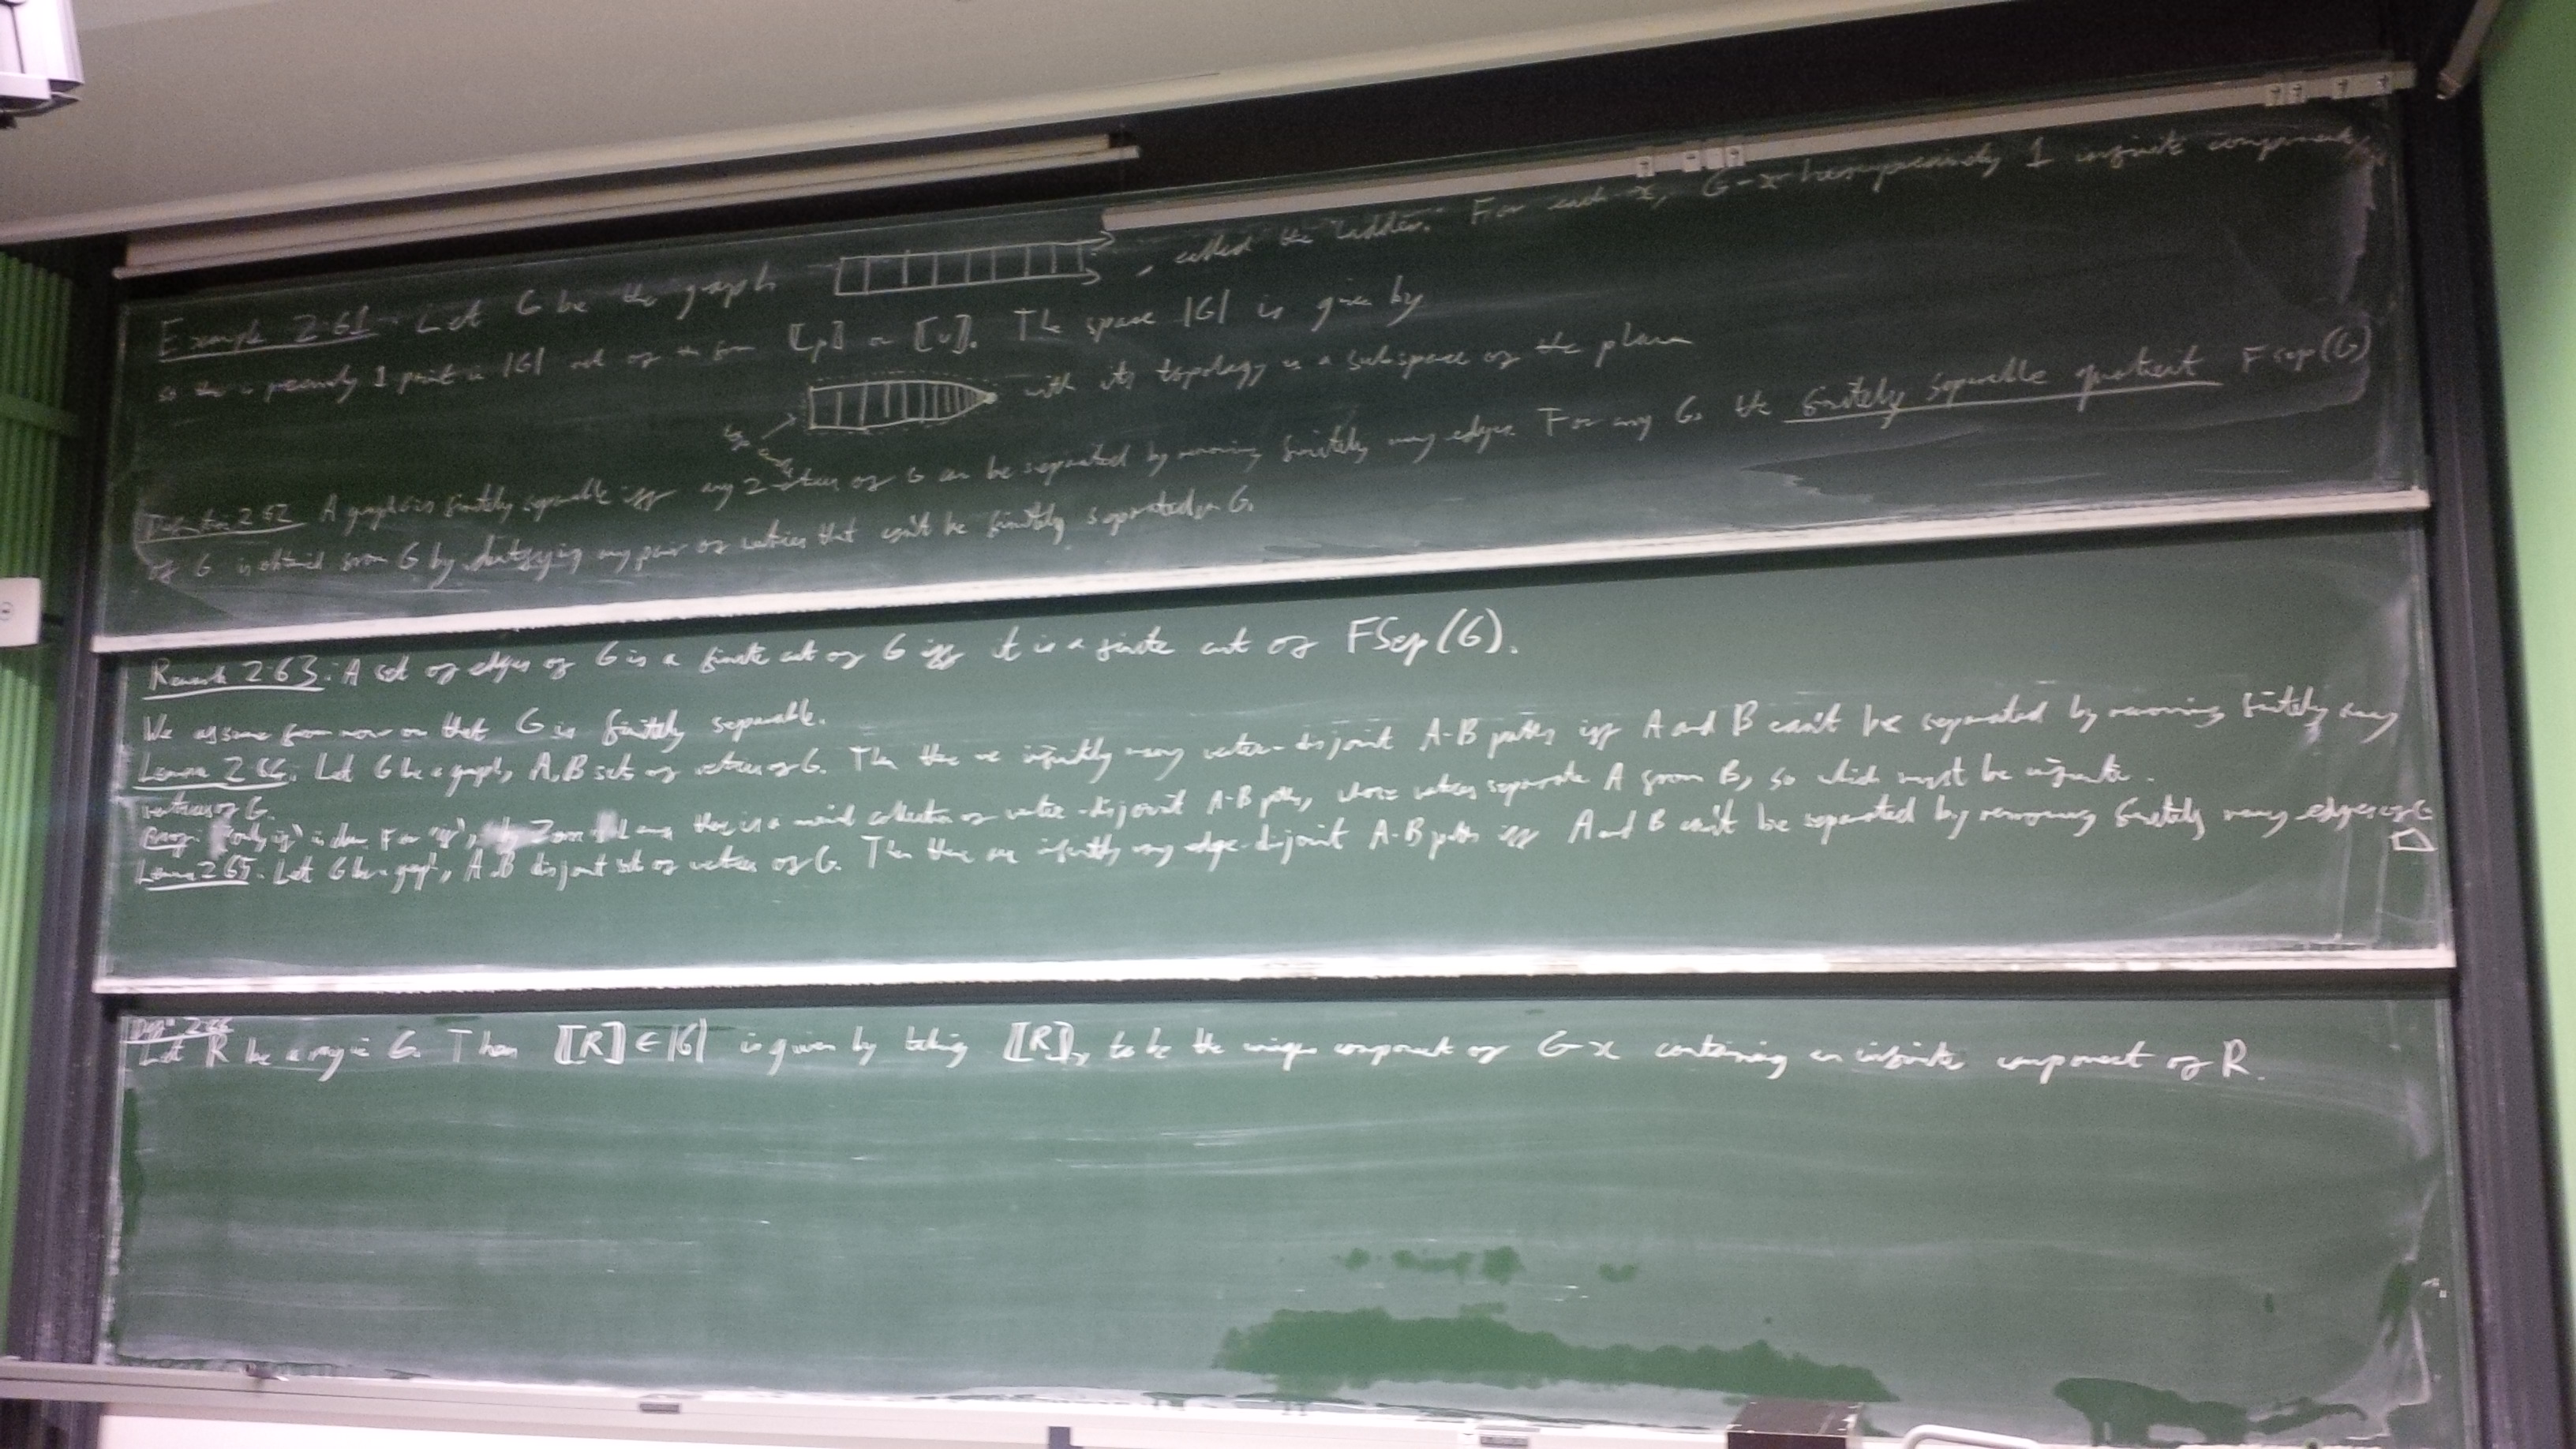 Example 2.61: Let G be the graph , called the "ladder." For each x, G-x has precisely 1 infinite component,
so there is precisely 1 point in |G| not of the form ⟦p⟧ or ⟦v⟧. The space |G| is given by
with its topology as a subspace of the plane
Definition 2.62 A graph G is finitely separable iff any 2 vertices of G can be separated by removing finitely many edges. For any G, the finitely separable quotient FSep(G)
of G is obtained from G by identifying any pair of vertices that can't be finitely separated in G.
Remark 2.63: A set of edges of G is a finite cut of G iff it is a finite cut of FSep(G).
We assume from now on that G is finitely separable.
Lemma 2.64. Let G be a graph, A, B sets of vertices of G. Then there are infinitely many vertex-disjoint A-B paths iff A and B can't be separated by removing finitely many
vertices of G.
Proof: "only if" is clear. For "if", by Zorn's Lemma there is a maximal collection of vertex-disjoint A-B paths, whose vertices separate A from B, so which must be infinite.
Lemma 2.65. Let G be a graph, A, B disjoint sets of vertices of G. Then there are infinitely many edge-disjoint A-B paths iff A and B can't be separated by removing finitely many edges of G
□
Defⁿ 2.66
Let R be a ray in G. Then ⟦R⟧ ∈ |G| is given by taking ⟦R⟧ₓ to be the unique component of G-x containing an infinite component of R.